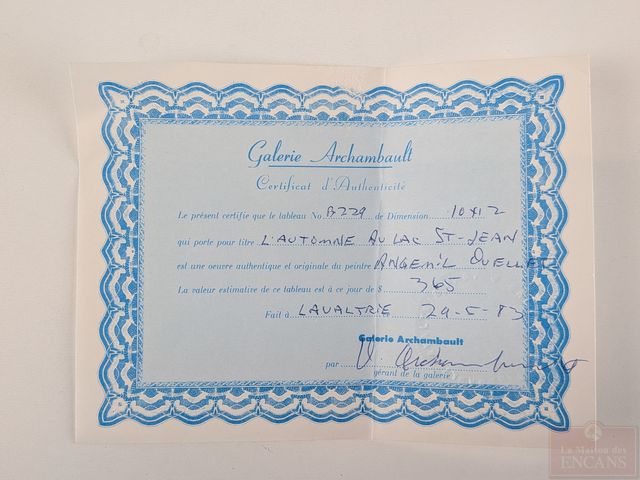 Galerie Archambault
Certificat d'Authenticité
Le présent certifie que le tableau No B229 de Dimension 10x12
qui porte pour titre L'AUTOMNE AU LAC ST-JEAN
est une oeuvre authentique et originale du peintre ANGEMIL OUELLET
La valeur estimative de ce tableau est à ce jour de $ 365
Fait à LAVALTRIE 29-5-83
Galerie Archambault
par V. Archambault
gérant de la galerie
La Maison des
ENCANS